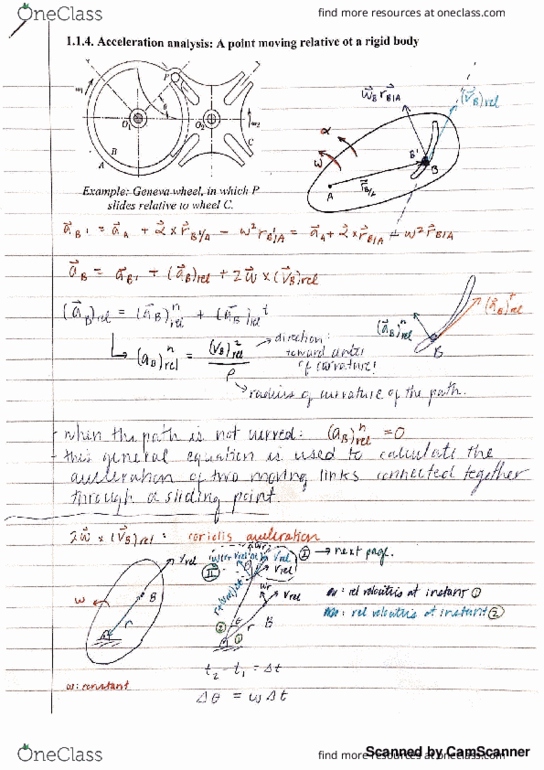 OneClass
find more resources at oneclass.com
1.1.4. Acceleration analysis: A point moving relative ot a rigid body
P
ω₁
O₁
O₂
ω₂
B
A
C
Example: Geneva wheel, in which P
slides relative to wheel C.
ω⃗_B r_B/A
(v⃗_B)rel
α
ω
B'
B
A
r⃗_B/A
a⃗_B' = a⃗_A + α⃗ × r⃗_B'/A − ω² r_B'/A = a⃗_A + α⃗ × r⃗_B/A − ω² r⃗_B/A
a⃗_B = a⃗_B' + (a⃗_B)rel + 2ω⃗ × (v⃗_B)rel
(a⃗_B)rel = (a⃗_B)ⁿrel + (a⃗_B)rel ᵗ
(a⃗_B)ⁿrel
(a⃗_B)ᵗrel
B
↳ (a_B)ⁿrel = (v_B)²rel / ρ
→ direction:
toward center
of curvature!
→ radius of curvature of the path.
- when the path is not curved: (a_B)ⁿrel = 0
- this general equation is used to calculate the
acceleration of two moving links connected together
through a sliding point.
2ω⃗ × (v⃗_B)rel : coriolis acceleration
ω
B
r
Vrel
II
Vrel
Vrel
ωr
I → next page.
Vrel
B
r
2
1
: rel velocities at instant 1
: rel velocities at instant 2
t₂ − t₁ = Δt
Δθ = ωΔt
ω: constant
OneClass
find more resources at oneclass.com
Scanned by CamScanner